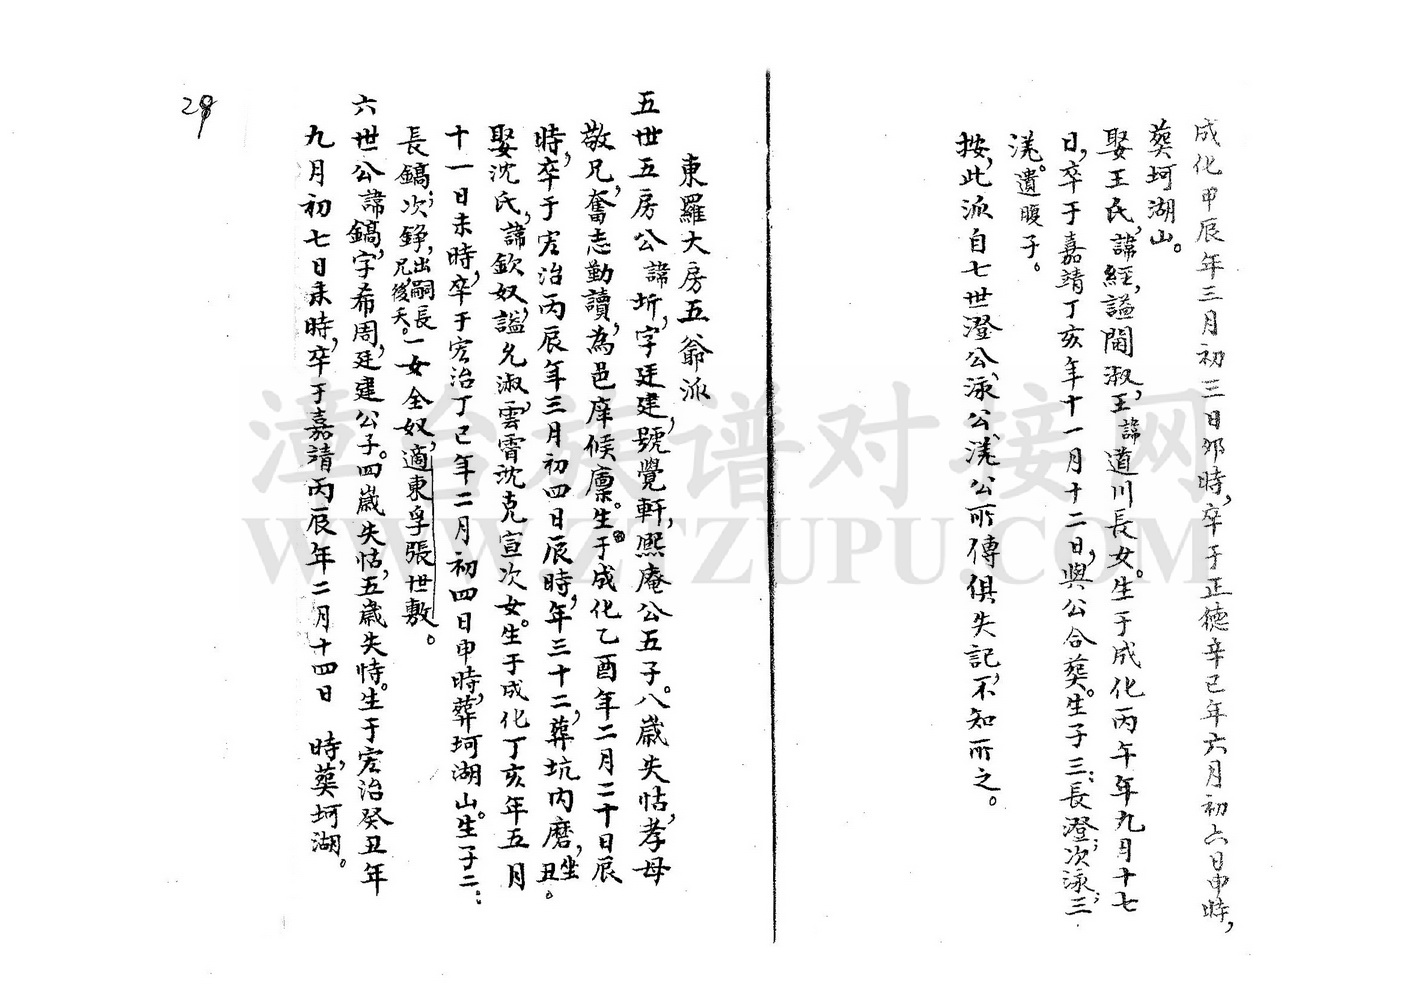 成化甲辰年三月初三日卯時，卒于正德辛巳年六月初六日申時，
葬坷湖山。
娶王氏，諱經，謚閫淑，王諱道川長女。生于成化丙午年九月十七
日，卒于嘉靖丁亥年十一月十二日，與公合葬。生子三：長澄；次泳；三
渼。遺腹子。
按，此派自七世澄公、泳公、渼公所傳俱失記，不知所之。
東羅大房五爺派
五世五房公諱圻，字廷建，號覺軒，熙庵公五子。八歲失怙，孝母
敬兄，奮志勤讀，為邑庠候廩。生于成化乙酉年二月二十日辰
時，卒于宏治丙辰年三月初四日辰時，年三十二，葬坑内磨，坐丑。
娶沈氏，諱欽奴，謚允淑，雲霄沈克宣次女。生于成化丁亥年五月
十一日未時，卒于宏治丁巳年二月初四日申時，葬坷湖山。生子二：
長鎬；次錚，出嗣長兄，後夭。一女全奴，適東孚張世敷。
六世公諱鎬，字希周，廷建公子。四歲失怙，五歲失恃。生于宏治癸丑年
九月初七日未時，卒于嘉靖丙辰年二月十四日 時，葬坷湖。
29
漳台族谱对接网
WWW.ZTZUPU.COM